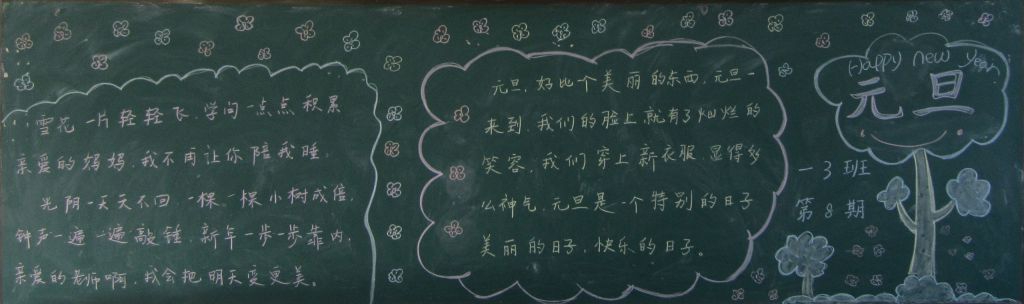 雪花一片轻轻飞，学问一点点积累
亲爱的妈妈，我不再让你陪我睡，
光阴一天天不回，一棵一棵小树成倍，
钟声一遍一遍敲锤，新年一步一步靠内，
亲爱的老师啊，我会把明天变更美。
元旦，好比个美丽的东西，元旦一
来到，我们的脸上就有了灿烂的
笑容，我们穿上新衣服，显得多
么神气，元旦是一个特别的日子
美丽的日子，快乐的日子。
Happy new year
元旦
一3班
第8期